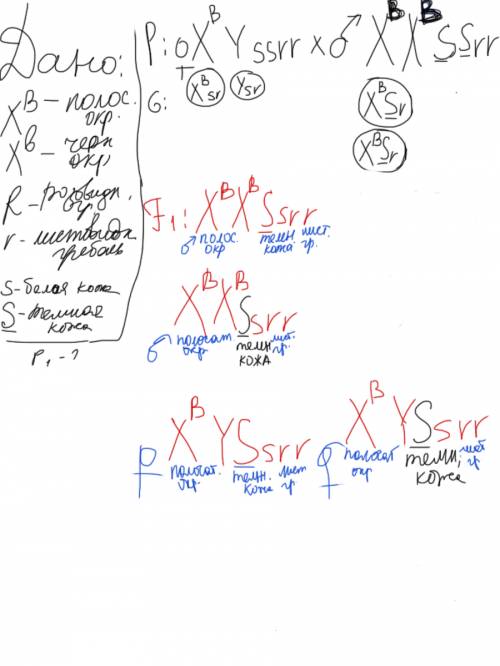 Дано:
X^B – полос. окр.
X^b – черн окр
R – розовидн. гр.
r – листовидн гребень
s – белая кожа
S – темная кожа
P₁ - ?
P: ♀ X^B Y ssrr x ♂ X^B X^B SSrr
G: X^B sr Y sr X^B Sr
X^B Sr
F₁: X^B X^B Ssrr
♂ полос. окр темн. кожа лист. гр.
X^B X^B Ssrr
♂ полосат окр. темн кожа лист. гр.
X^B Y Ssrr X^B Y Ssrr
♀ полосат. окр. темн. кожа лист гр. ♀ полосат окр темн, кожа лист гр